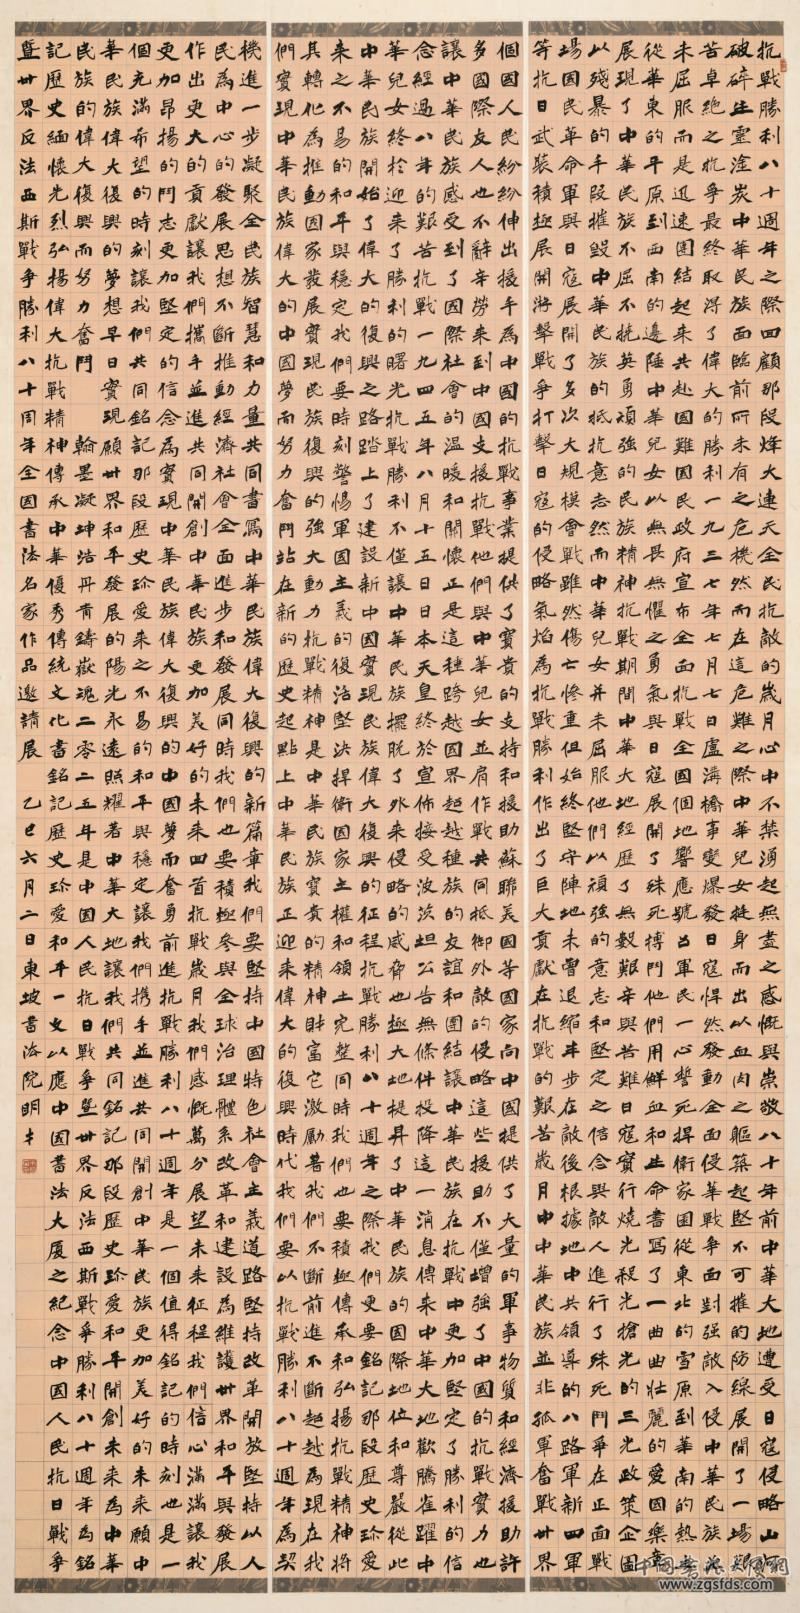 抗戰勝利八十週年之際回顧那段烽火連天全民抗敵的歲月心中不禁湧起無盡之感慨與崇敬八十年前中華大地遭受日寇侵略山河
破碎生靈塗炭中華民族面臨前所未有之危機然而在這危難之際中華兒女挺身而出以血肉之軀築起堅不可摧的防線展開了一場艱
苦卓絕之抗爭最終取得了偉大的勝利一九三七年七月七日盧溝橋事變爆發日寇悍然發動全面侵華戰爭面對強敵入侵中華民族並
未屈服而是迅速團結起来共赴國難國民政府宣布全面抗戰全國個地響應號召軍民一心誓死捍衛家國從東北的雪原到華南的熱土
從華東的平原到西南的邊陲中華兒女以無畏無懼之勇氣與日寇展開了殊死搏鬥他們用鮮血和生命書寫了一曲曲壯麗的愛國樂章
展現了中華民族不屈不撓英勇頑強的民族精神抗戰期間中華大地經歷了無數艱辛與苦難日寇實行燒光殺光搶光的三光政策企圖
以殘暴的手段摧毀中華民族的抵抗意志然而中華兒女并未屈服他們以頑強的意志和堅定之信念與敵人進行了殊死鬥爭在正面戰
場國民革命軍與日寇展開了多次大規模會戰雖然傷亡慘重但始終堅守陣地未曾退縮半步在敵後根據地中共領導的八路軍新四軍
等抗日武裝積極展開游擊戰爭打擊日寇的侵略氣焰為抗戰勝利作出了巨大貢獻在抗戰的艱苦歲月中中華民族並非孤軍奮戰世界
個國人民紛紛伸出援手為中國的抗戰事業提供了寶貴的支持和援助蘇聯美國等國家向中國提供了大量的軍事物質和經濟援助許
多國際友人也不辭辛勞来到中國支援抗戰他們與中華兒女並肩作戰共同抵御外敵的侵略這些援助不僅增強了中國的抗戰實力也
讓中華民族感受到了國際社會的温暖和關懷正是這種跨越國界超越種族的友誼和團結讓中華民族在抗戰中更加堅定了勝利的信
念經過八年的艱苦抗戰一九四五年八月十五日日本天皇終於宣佈接受波茨坦公告無條件投降這一消息傳来中華大地歡騰雀躍中
華兒女終於迎来了勝利的曙光抗戰勝利不僅讓中華民族擺脫了外来侵略的威脅也極大地提昇了中華民族的國際地位和尊嚴從此
中華民族開始了偉大的復興之路踏上了建設新中國實現民族偉大復興的征程抗戰勝利八十週年之際我們更要銘記那段歷史珍愛
来之不易的和平與穩定我們要時刻警惕軍國主義的復活堅決捍衛國家主權和領土完整同時我們也要積極傳承和弘揚抗戰精神將
其轉化為推動國家發展實現民族復興的強大動力抗戰精神是中華民族寶貴的精神財富它激勵著我們不斷前進不斷超越為現在我
們實現中華民族偉大的中國夢而努力奮鬥站在新的歷史起點上中華民族正迎来偉大的復興時代我們要以抗戰勝利八十週年為契
機進一步凝聚全民族智慧和力量共同書寫中華民族偉大復興的新篇章我們要堅持中國特色社會主義道路堅持改革開放堅持以人
民為中心的發展思想不斷推動經濟社會全面進步和發展同時我們也要積極參與全球治理體系改革和建設為維護世界和平與發展
作出更大的貢獻讓我們攜手並進共同開創中華民族更加美好的未来回首抗戰歲月我們感慨萬分展望未来征程我們信心滿滿讓我
更加昂揚的鬥志更加堅定的信念為實現中華民族偉大復興的中國夢而奮勇前進抗戰勝利八十週年是一個值得銘記的時刻也是一
個充滿希望的時刻讓我們共同銘記那段歷史珍愛来之不易的和平與穩定讓我們携手並進共同開創中華民族更加美好的未来願中
華民族偉大復興的夢想早日實現願世界和平發展的陽光永遠照耀著中華大地讓我們共同銘記那段歷史珍愛和平開創未来為中華
民族的偉大復興而努力奮鬥 翰墨凝坤浩丹青鑄嶽魂二零二五年是中國人民抗日戰爭暨世界反法西斯戰爭勝利八十週年為銘
記歷史緬懷先烈弘揚偉大抗戰精神傳承中華優秀傳統文化書銘記歷史珍愛和平一文以應中國書法大厦之紀念中國人民抗日戰爭
暨世界反法西斯戰爭勝利八十周年全國書法名家作品邀請展 乙巳六月二日東坡書法院明才
中国书法大厦网
www.zgsfds.com